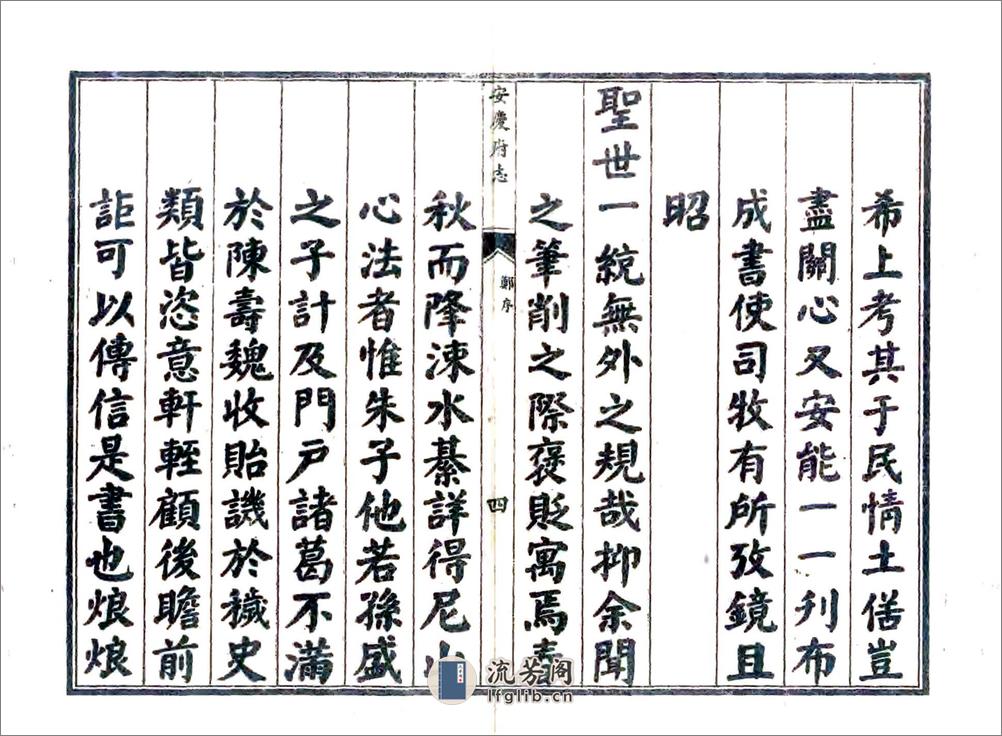 希上考其于民情土俗豈
盡關心又安能一一刋布
成書使司牧有所攷鏡且
昭
聖世一統無外之規哉抑余聞
之筆削之際褒貶寓焉春
安慶府志
鄭序
四
秋而降涑水綦詳得尼山
心法者惟朱子他若孫盛
之子計及門戸諸葛不滿
於陳壽魏收貽譏於穢史
類皆恣意軒輊顧後瞻前
詎可以傳信是書也烺烺
流芳阁
lfglib.cn